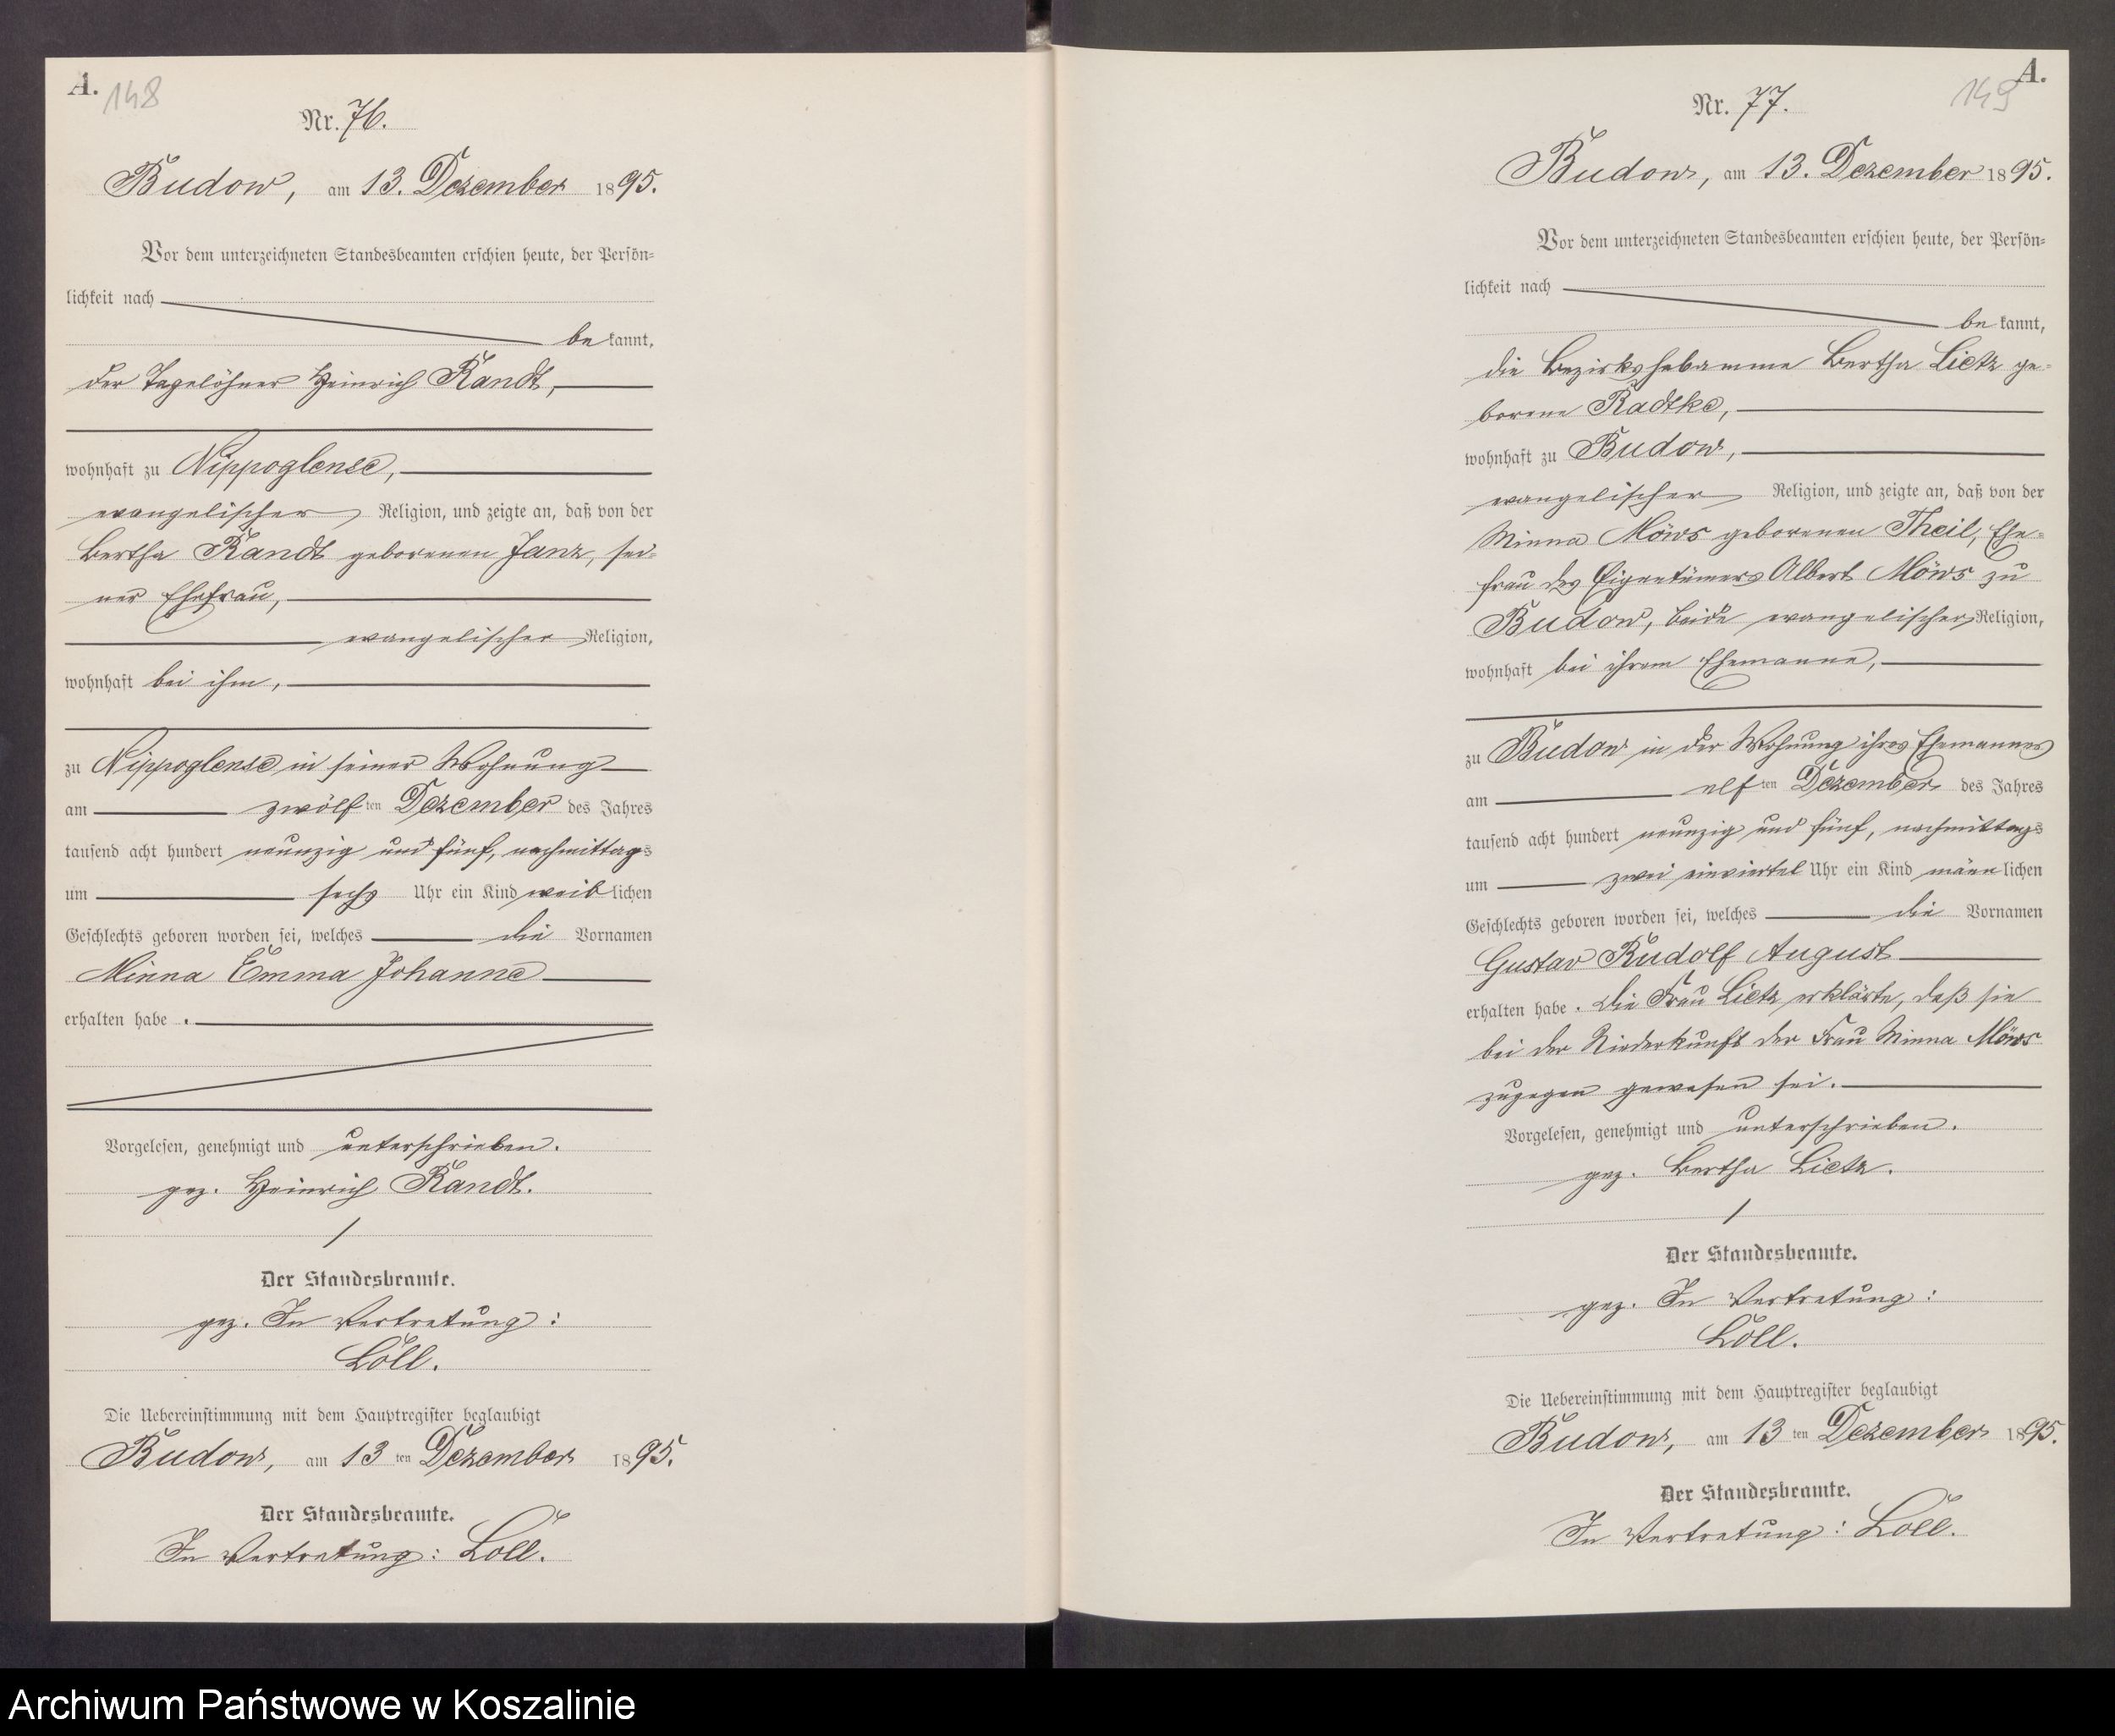 A.
148
Nr. 76.
Budow, am 13. Dezember 1895.
Vor dem unterzeichneten Standesbeamten erschien heute, der Persön-
lichkeit nach
bekannt,
der Tagelöhner Heinrich Kandt,
wohnhaft zu Nippoglense,
evangelischer Religion, und zeigte an, daß von der
Bertha Kandt geborenen Janz, sei-
ner Ehefrau,
evangelischer Religion,
wohnhaft bei ihm,
zu Nippoglense in seiner Wohnung
am zwölften Dezember des Jahres
tausend acht hundert neunzig und fünf, nachmittags
um sechs Uhr ein Kind weiblichen
Geschlechts geboren worden sei, welches die Vornamen
Minna Emma Johanne
erhalten habe.
Vorgelesen, genehmigt und unterschrieben.
gez. Heinrich Kandt.
Der Standesbeamte.
gez. In Vertretung:
Löll.
Die Uebereinstimmung mit dem Hauptregister beglaubigt
Budow, am 13ten Dezember 1895.
Der Standesbeamte.
In Vertretung: Löll.
A.
149
Nr. 77.
Budow, am 13. Dezember 1895.
Vor dem unterzeichneten Standesbeamten erschien heute, der Persön-
lichkeit nach
bekannt,
die Bezirkshebamme Bertha Lietz ge-
borene Radtke,
wohnhaft zu Budow,
evangelischer Religion, und zeigte an, daß von der
Minna Möws geborenen Theil, Ehe-
frau des Eigentümers Albert Möws zu
Budow, beide evangelischer Religion,
wohnhaft bei ihrem Ehemanne,
zu Budow in der Wohnung ihres Ehemannes
am elften Dezember des Jahres
tausend acht hundert neunzig und fünf, nachmittags
um zwei einviertel Uhr ein Kind männlichen
Geschlechts geboren worden sei, welches die Vornamen
Gustav Rudolf August
erhalten habe. Die Frau Lietz erklärte, daß sie
bei der Niederkunft der Frau Minna Möws
zugegen gewesen sei.
Vorgelesen, genehmigt und unterschrieben.
gez. Bertha Lietz.
Der Standesbeamte.
gez. In Vertretung:
Löll.
Die Uebereinstimmung mit dem Hauptregister beglaubigt
Budow, am 13ten Dezember 1895.
Der Standesbeamte.
In Vertretung: Löll.
Archiwum Państwowe w Koszalinie